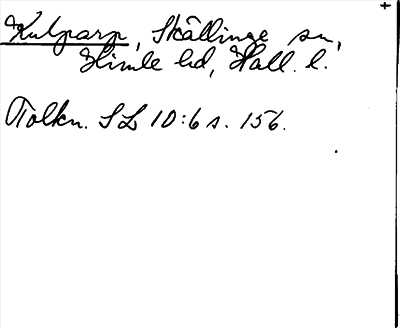 +
Kulparp, Skällinge sn,
Himle hd, Hall. l.
Tolkn. SL 10:6 s. 156.